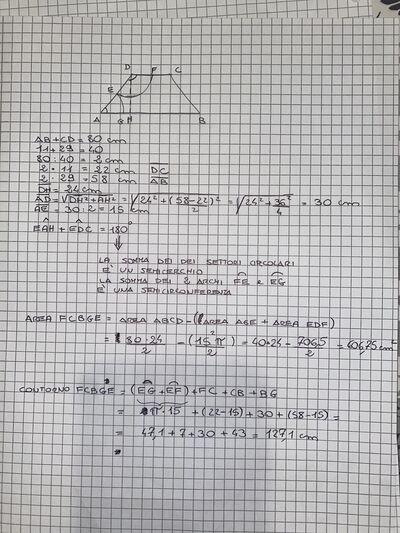 D F C
E
A G H B
AB+CD = 80 cm
11+29 = 40
80:40 = 2 cm
2·11 = 22 cm DC
2·29 = 58 cm AB
DH = 24 cm
AD = √DH²+AH² = √24²+(58-22)²/2 = √24²+36²/4 = 30 cm
AE = 30:2 = 15 cm
EÂH + EDC = 180°
LA SOMMA DEI DEI SETTORI CIRCOLARI
E' UN SEMICERCHIO
LA SOMMA DEI 2 ARCHI FE e EG
E' UNA SEMICIRCONFERENZA
AREA FCBGE = AREA ABCD - (AREA AGE + AREA EDF)
= 80·24/2 - (15²π/2) = 40·24 - 706,5/2 = 606,75 cm²
CONTORNO FCBGE = (EG+EF)+FC+CB+BG
= π·15 +(22-15)+30+(58-15) =
= 47,1+7+30+43 = 127,1 cm